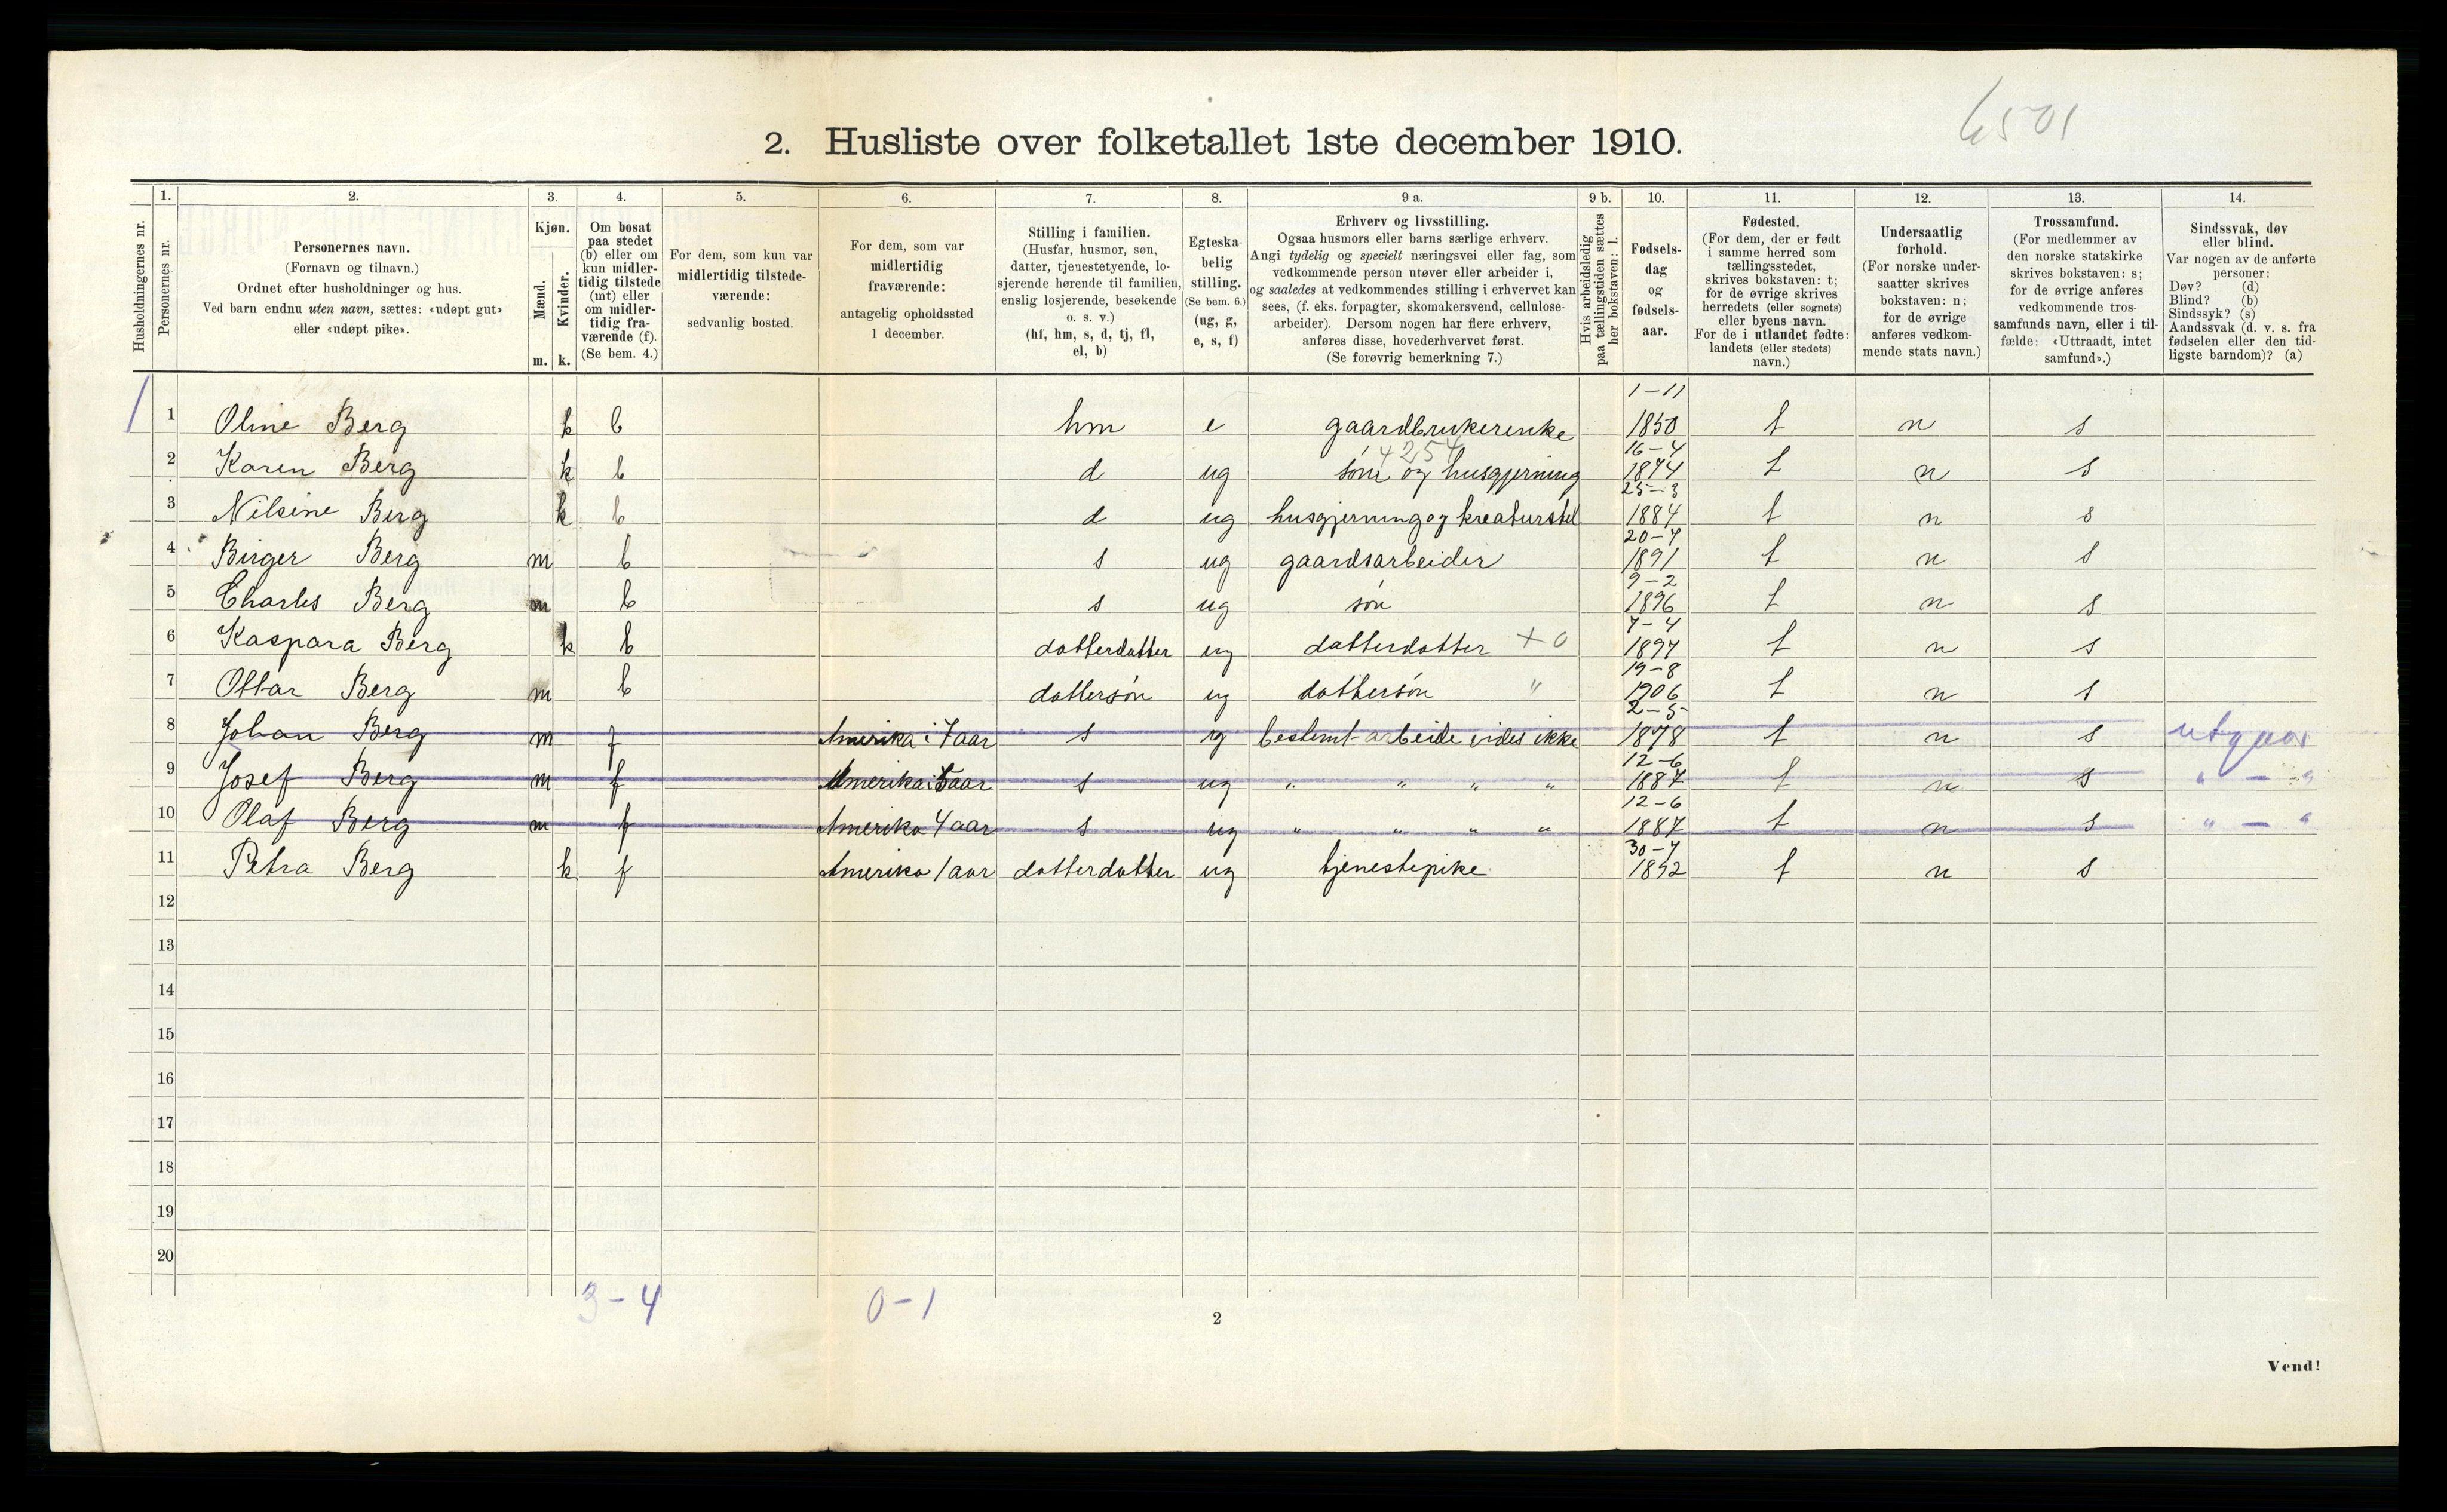 6501
2. Husliste over folketallet 1ste december 1910.
Husholdningernes nr.
1. Personernes nr.
2. Personernes navn.
(Fornavn og tilnavn.)
Ordnet efter husholdninger og hus.
Ved barn endnu uten navn, sættes: «udøpt gut»
eller «udøpt pike».
3. Kjøn.
Mænd. m.
Kvinder. k.
4. Om bosat
paa stedet
(b) eller om
kun midler-
tidig tilstede
(mt) eller
om midler-
tidig fra-
værende (f).
(Se bem. 4.)
5. For dem, som kun var
midlertidig tilstede-
værende:
sedvanlig bosted.
6. For dem, som var
midlertidig
fraværende:
antagelig opholdssted
1 december.
7. Stilling i familien.
(Husfar, husmor, søn,
datter, tjenestetyende, lo-
sjerende hørende til familien,
enslig losjerende, besøkende
o. s. v.)
(hf, hm, s, d, tj, fl,
el, b)
8. Egteska-
belig
stilling.
(Se bem. 6.)
(ug, g,
e, s, f)
9 a. Erhverv og livsstilling.
Ogsaa husmors eller barns særlige erhverv.
Angi tydelig og specielt næringsvei eller fag, som
vedkommende person utøver eller arbeider i,
og saaledes at vedkommendes stilling i erhvervet kan
sees, (f. eks. forpagter, skomakersvend, cellulose-
arbeider). Dersom nogen har flere erhverv,
anføres disse, hovederhvervet først.
(Se forøvrig bemerkning 7.)
9 b. Hvis arbeidsledig
paa tællingstiden sættes
her bokstaven: l.
10. Fødsels-
dag
og
fødsels-
aar.
11. Fødested.
(For dem, der er født
i samme herred som
tællingsstedet,
skrives bokstaven: t;
for de øvrige skrives
herredets (eller sognets)
eller byens navn.
For de i utlandet fødte:
landets (eller stedets)
navn.)
12. Undersaatlig
forhold.
(For norske under-
saatter skrives
bokstaven: n;
for de øvrige
anføres vedkom-
mende stats navn.)
13. Trossamfund.
(For medlemmer av
den norske statskirke
skrives bokstaven: s;
for de øvrige anføres
vedkommende tros-
samfunds navn, eller i til-
fælde: «Uttraadt, intet
samfund».)
14. Sindssvak, døv
eller blind.
Var nogen av de anførte
personer:
Døv? (d)
Blind? (b)
Sindssyk? (s)
Aandssvak (d. v. s. fra
fødselen eller den tid-
ligste barndom)? (a)
1 1 Oline Berg k b hm e gaardbrukerenke 1-11 1850 t n s
4254
2 Karen Berg k b d ug søm og husgjerning 16-4 1874 t n s
3 Nilsine Berg k b d ug husgjerning og kreaturstel 25-3 1884 t n s
4 Birger Berg m b s ug gaardsarbeider 20-7 1891 t n s
5 Charles Berg m b s ug søn 9-2 1896 t n s
6 Kaspara Berg k b datterdatter ug datterdatter + 0 7-4 1897 t n s
7 Ottar Berg m b dattersøn ug dattersøn " 19-8 1906 t n s
8 Johan Berg m f Amerika i 7 aar s ug bestemt arbeide vides ikke 2-5 1878 t n s utgaar
9 Josef Berg m f Amerika i 5 aar s ug " " " " 12-6 1887 t n s " — "
10 Olaf Berg m f Amerika 4 aar s ug " " " " 12-6 1887 t n s " — "
11 Petra Berg k f Amerika 1 aar datterdatter ug tjenestepike 30-7 1892 t n s
12
13
14
15
16
17
18
19
20
3-4 0-1
2
Vend!